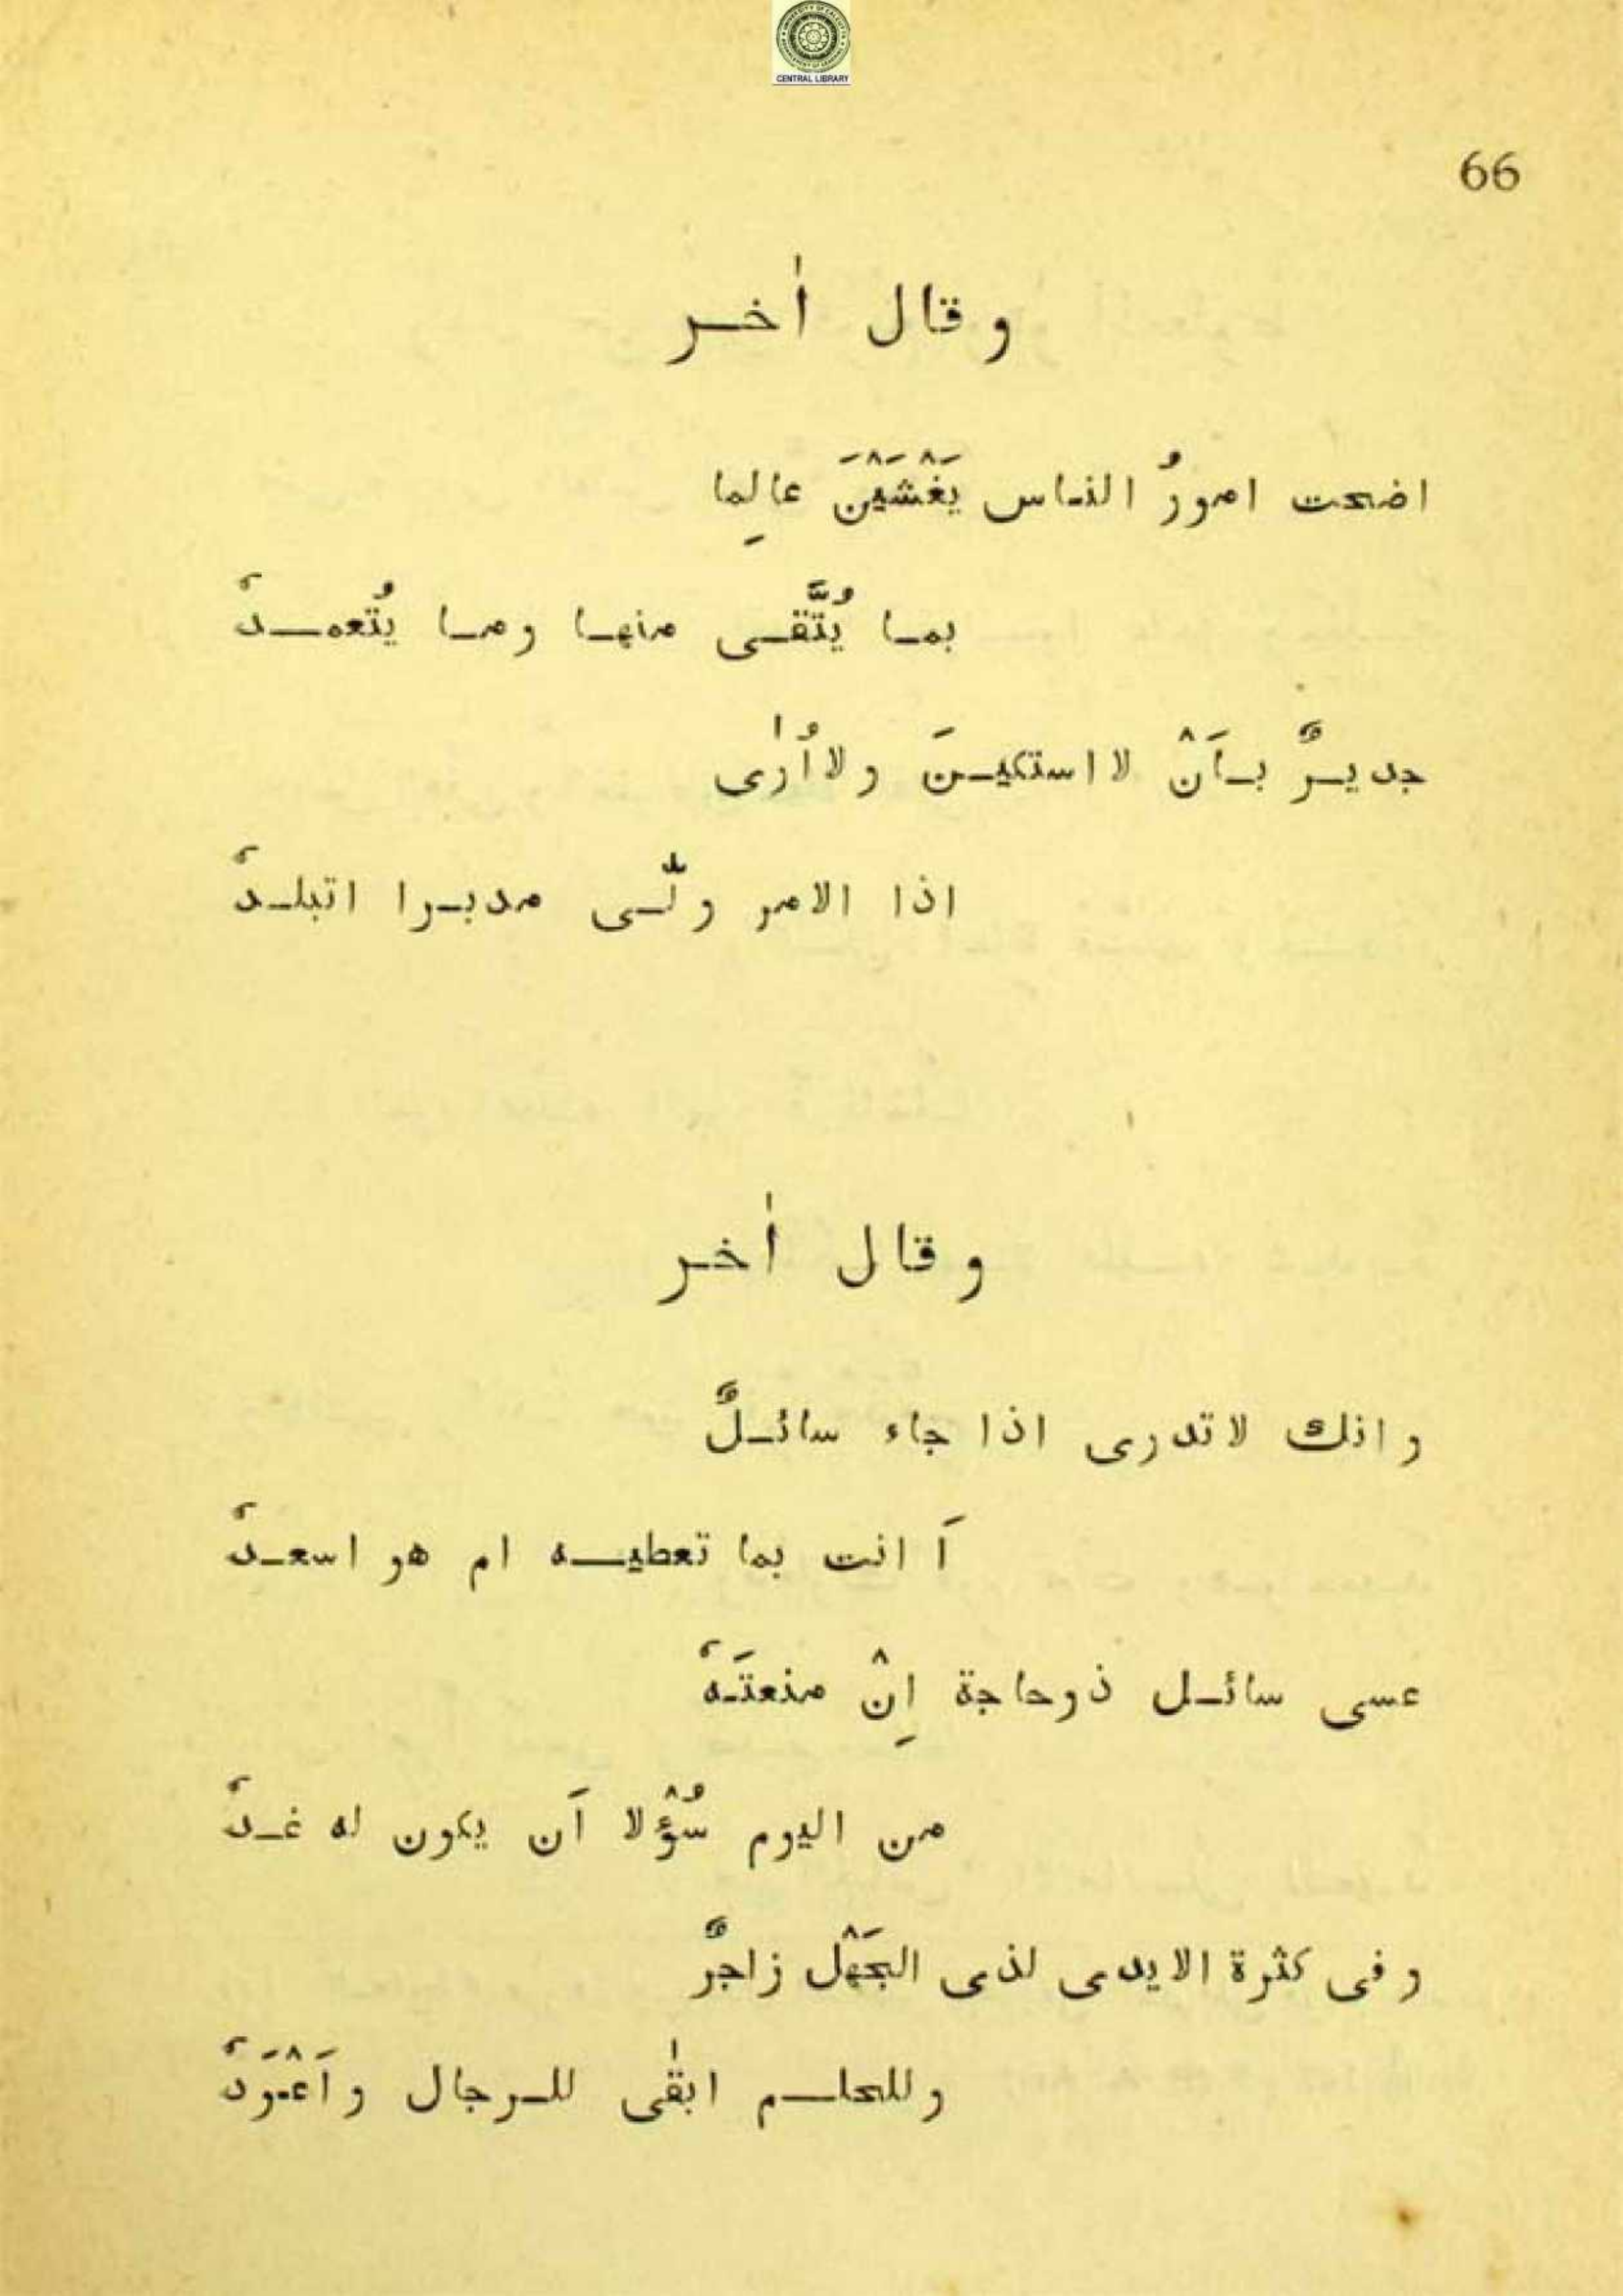 CENTRAL LIBRARY
66
و قال اٰخر
اضحت امورُ الناس يَغْشَيْنَ عالِما
بما يُتَّقى منها وما يُتعمدُ
جديرٌ بأَنْ لا استكينَ ولا اُرٰى
اذا الامر ولّى مدبرا اتبلدُ
و قال اٰخر
وانك لاتدرى اذا جاء سائلٌ
أَ انت بما تعطيه ام هو اسعدُ
عسى سائل ذوحاجة اِنْ منعتَهُ
من اليوم سُؤْلا اَن يكون له غدُ
وفى كثرة الايدى لذى الجَهْل زاجرٌ
وللحلم ابقٰى للرجال واَعْوَدُ